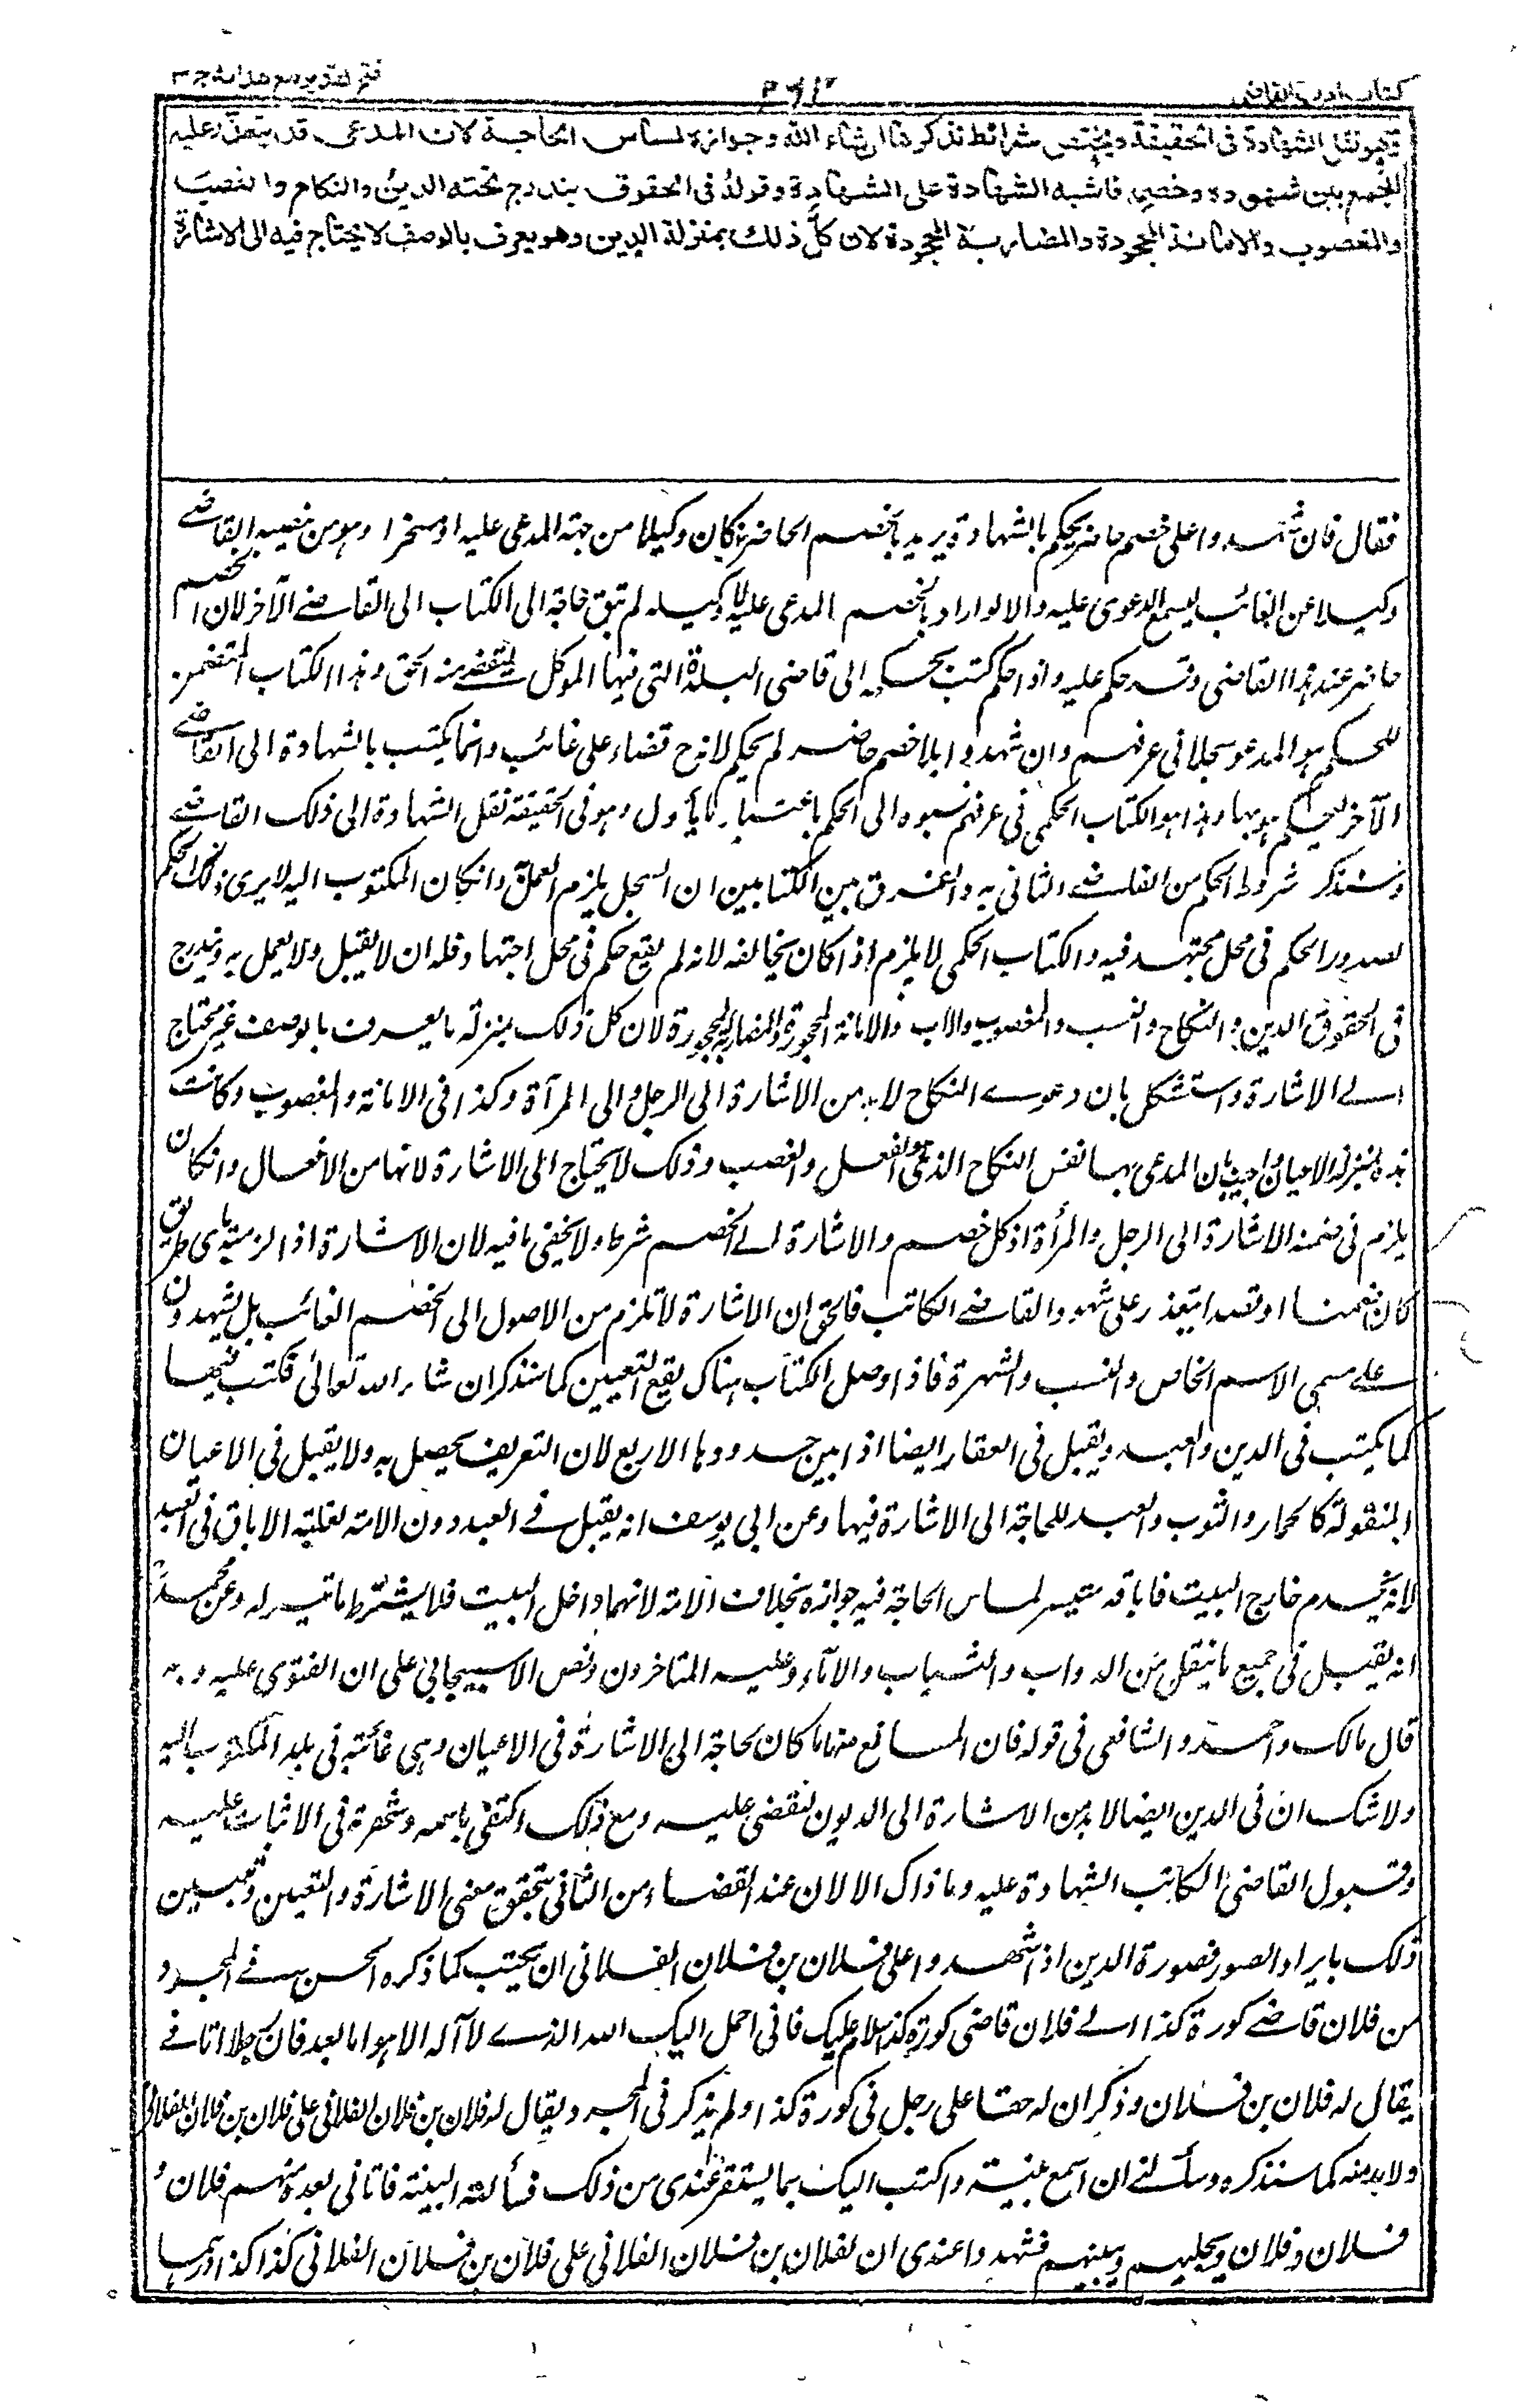 كتاب ادب القاضى
٣٦٢
فتح القدير مع هداية ج ٣
وهو نقل الشهادة فى الحقيقة ويختص بشرائط نذكرها ان شاء الله وجوازه لمساس الحاجة لان المدعى قد يتعذر عليه
الجمع بين شهوده وخصمه فاشبه الشهادة على الشهادة وقوله فى الحقوق يندرج تحته الدين والنكاح والنسب
والمغصوب والامانة المجحودة والمضاربة المجحودة لان كل ذلك بمنزلة الدين وهو يعرف بالوصف لا يحتاج فيه الى الاشارة
فقال فان شهدوا على خصم حاضر يحكم بالشهادة يريد بالخصم الحاضر من كان وكيلا من جهة المدعى عليه او مسخرا وهو من ينصبه القاضى
وكيلا عن الغائب ليسمع الدعوى عليه والا لو اراد بالخصم المدعى عليه لا وكيله لم تبق حاجة الى الكتاب الى القاضى الآخر لان الخصم
حاضر عند هذا القاضى وقد حكم عليه واذا حكم كتب بحكمه الى قاضى البلدة التى فيها الموكل ليقتضى منه الحق وهذا الكتاب المتضمن
للحكم هو المدعو سجلا فى عرفهم وان شهدوا بلا خصم حاضر لم يحكم لانه ح قضاء على غائب وانما يكتب بالشهادة الى القاضى
الآخر ليحكم هو بها وهذا هو الكتاب الحكمى فى عرفهم نسبوه الى الحكم باعتبار ما يأول وهو فى الحقيقة نقل الشهادة الى ذلك القاضى
وسنذكر شروط الحكم من القاضى الثانى به والفرق بين الكتابين ان السجل يلزم العمل به وان كان المكتوب اليه لا يرى ذلك الحكم
لصدور الحكم فى محل مجتهد فيه والكتاب الحكمى لا يلزم اذا كان يخالفه لانه لم يقع حكم فى محل اجتهاد فله ان لا يقبل ولا يعمل به ويندرج
فى الحقوق الدين والنكاح والنسب والمغصوب والاب والامانة المجحودة والمضاربة المجحودة لان كل ذلك بمنزلة ما يعرف بالوصف غير محتاج
الى الاشارة واستشكل بان دعوى النكاح لابد من الاشارة الى الرجل والى المرآة وكذا فى الامانة والمغصوب وكانت
هذه بمنزلة الاعيان واجيب بان المدعى بها نفس النكاح الذى هو الفعل والغصب وذلك لا يحتاج الى الاشارة لانها من الافعال وان كان
يلزم فى ضمنه الاشارة الى الرجل والمرأة اذ كل خصم والاشارة الى الخصم شرط ولا يخفى ما فيه لان الاشارة اذا لزمت باى طريق
كان ضمنا او قصدا يتعذر على شهود القاضى الكاتب فالحق ان الاشارة لا تلزم من الاصول الى الخصم الغائب بل يشهدون
على مسمى الاسم الخاص والنسب والشهرة فاذا وصل الكتاب هناك يقع التعيين كما سنذكر ان شاء الله تعالى فكتب فيها
كما يكتب فى الدين والعبد ويقبل فى العقار ايضا اذا بين حدودها الاربع لان التعريف يحصل به ولا يقبل فى الاعيان
المنقولة كالحمار والثوب والعبد للحاجة الى الاشارة فيها وعن ابى يوسف انه يقبل فى العبد دون الامة لغلبة الاباق فى العبد
لانه يخدم خارج البيت فاباقه متيسر لمساس الحاجة فيه جوازه بخلاف الامة لانها داخل البيت فلا يشترط ما تيسر له وعن محمد
انه يقبل فى جميع ما ينقل من الدواب والثياب والاماء وعليه المتاخرون ونص الاسبيجابى على ان الفتوى عليه وبه
قال مالك واحمد والشافعى فى قوله فان المانع منها ما كان لحاجة الى الاشارة فى الاعيان وهى غائبة فى بلد المكتوب اليه
ولا شك ان فى الدين ايضا لابد من الاشارة الى المديون ليقضى عليه ومع ذلك اكتفى باسمه وشهرة فى الاثبات عليه
وقبول القاضى الكاتب الشهادة عليه وما ذاك الا لان عند القضاء من الثانى يتحقق معنى الاشارة والتعيين وتبيين
ذلك بايراد الصور فصورة الدين اذا شهدوا على فلان بن فلان الفلانى ان يكتب كما ذكره الحسن فى المجرد
من فلان قاضى كورة كذا الى فلان قاضى كورة كذا سلام عليك فانى احمل اليك الله الذى لا آله الا هو اما بعد فان رجلا اتانى
يقال له فلان بن فلان وذكر ان له حقا على رجل فى كورة كذا ولم يذكر فى المجرد ويقال له فلان بن فلان الفلانى على فلان بن فلان الفلانى
ولابد منه كما سنذكره وسألنى ان اسمع بينته واكتب اليك بما يستقر عندى من ذلك فسألته البينة فاتانى بعدة منهم فلان و
فلان وفلان ويحليهم وينسبهم فشهدوا عندى ان لفلان بن فلان الفلانى على فلان بن فلان الفلانى كذا كذا درهما